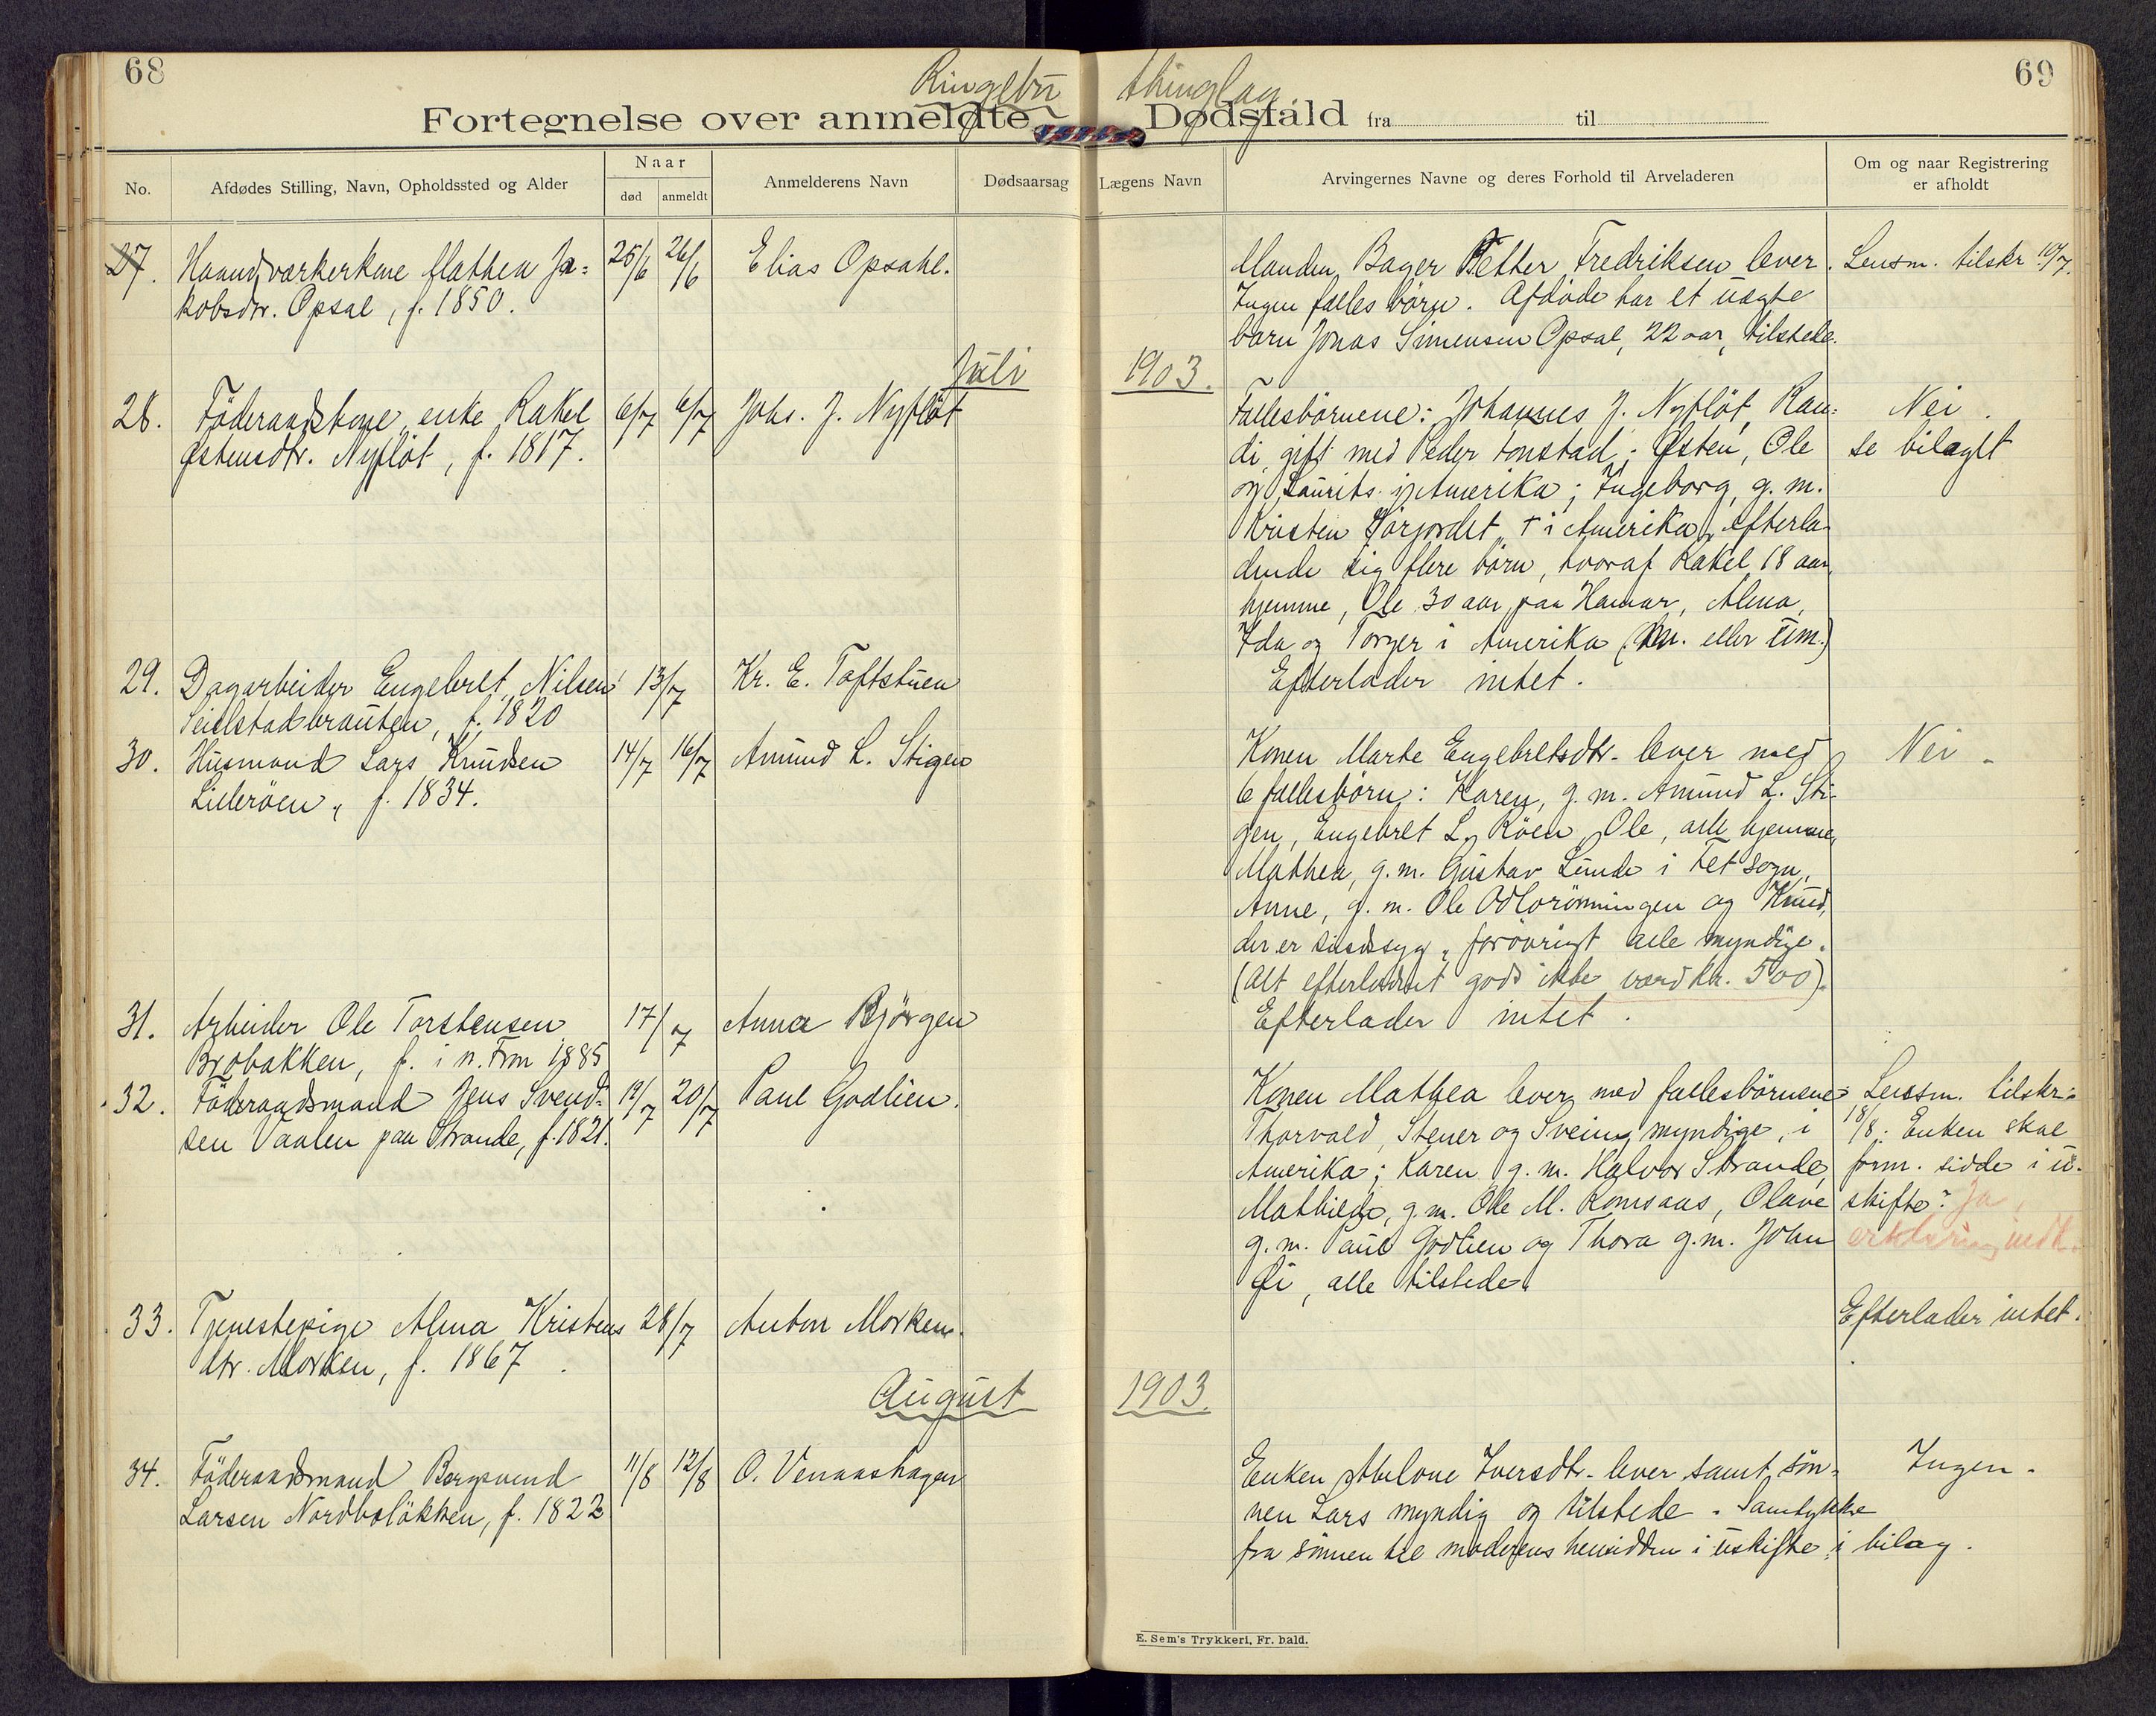 68
69
Ringebu thinglag
Fortegnelse over anmeldte Dødsfald fra til
No.
Afdødes Stilling, Navn, Opholdssted og Alder
Naar
død
anmeldt
Anmelderens Navn
Dødsaarsag
Lægens Navn
Arvingernes Navne og deres Forhold til Arveladeren
Om og naar Registrering
er afholdt
27. Haandværkerkone Mathea Ja=
kobsdtr. Opsal, f. 1850.
25/6 26/6 Elias Opsahl.
Manden, Bager Petter Fredriksen lever.
Ingen fælles börn. Afdöde har et uægte
barn Jonas Simensen Opsal, 22 aar, tilstede.
Lensm. tilskr 10/7.
Juli 1903.
28. Föderaadskone, enke Rakel
Østensdtr. Nyflöt, f. 1817.
6/7 6/7 Johs. J. Nyflöt
Fællesbörnene: Johannes J. Nyflöt, Ran=
di, gift med Peder Tonstad; Østen, Ole
og Laurits i Amerika; Ingeborg, g. m.
Kristen Sörjordet + i Amerika, efterla-
dende sig flere börn, hvoraf Rakel 18 aar,
hjemme, Ole 30 aar, paa Hamar, Alma,
Ida og Torger i Amerika (m. eller um.)
Nei.
se bilaglt
29. Dagarbeider Engebret Nilsen
Seielstadbrauten, f. 1820
13/7 Kr. E. Toftstuen
Efterlader intet.
30. Husmand Lars Knudsen
Lilleröen, f. 1834.
14/7 16/7 Amund L. Stigen
Konen Marte Engebretsdtr. lever med
6 fællesbörn: Karen, g. m. Amund L. Sti-
gen, Engebret L. Röen, Ole, alle hjemme,
Mathea, g. m. Gustav Lunde i Øet sogn,
Anne, g. m. Ole Odlorönningen og Knud,
der er sindssyg, forövrigt alle myndige.
(Alt efterladt gods ikke værd kr. 500).
Nei -
31. Arbeider Ole Torstensen
Brobakken, f. i n. Fron 1885
17/7 Anna Björgen
Efterlader intet.
32. Föderaadsmand Jens Svend=
sen Vaalen paa Strande, f. 1821.
19/7 20/7 Paul Godlien.
Konen Mathea lever med fællesbörnene:
Thorvald, Stener og Svein, myndige, i
Amerika; Karen g. m. Halvor Strande,
Mathilde, g. m. Ole M. Romsaas, Olave
g. m. Paul Godlien og Thora g. m. John
Øi, alle tilstede.
Lensm. tilskr.
18/8: Enken skal
form. sidde i u-
skifte? Ja,
erklæring indk.
33. Tjenestepige Alma Kristens
dtr. Morken, f. 1867.
28/7 Anton Morken.
Efterlader intet.
August 1903.
34. Föderaadsmand Bergsvend
Larsen Nordholökken, f. 1822
11/8 12/8 O. Venaashagen
Enken Abelone Iversdtr. lever samt sön-
nen Lars myndig og tilstede. Samtykke
fra sönnen til moderens hensidden i uskifte i bilag.
Ingen.
E. Sem's Trykkeri, Fr. hald.